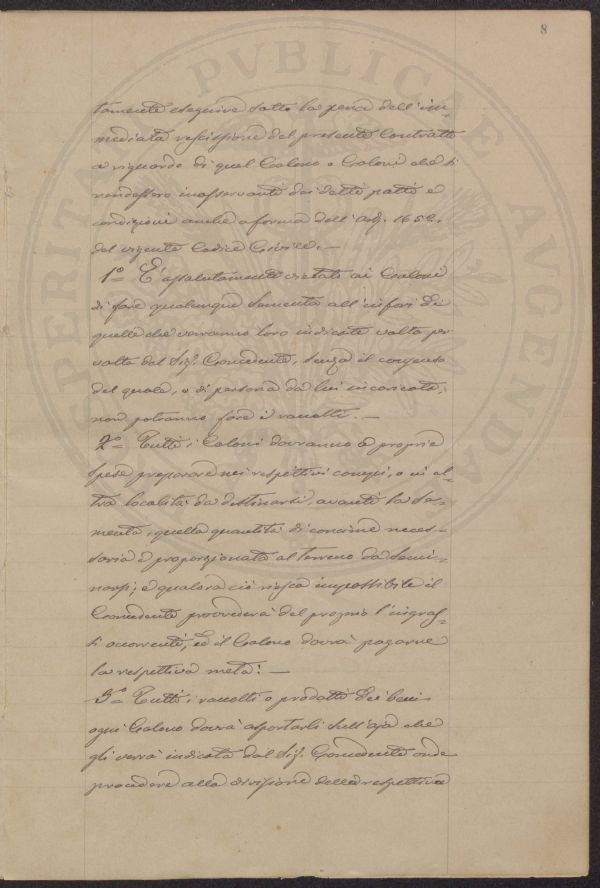 8
tamente eseguire sotto la pena dell'im-
mediata rescissione del presente Contratto
a riguardo di quel Colono o Coloni che si
rendessero inosservanti dei detti patti e
condizioni anche a forma dell'Art. 1652.
del vigente Codice Civile. —
1º = E' assolutamente vietato ai Coloni
di fare qualunque sementa all'infuori di
quelle che verranno loro indicate volta per
volta dal Sig. Concedente, senza il consenso
del quale, o di persona da lui incaricata,
non potranno fare i raccolti. —
2º = Tutti i Coloni dovranno a proprie
spese preparare nei respettivi campi, o in al-
tra località da destinarsi, avanti la se-
menta, quella quantità di concime neces-
saria e proporzionata al terreno da semi-
narsi; e qualora ciò riesca impossibile il
Concedente provvederà del proprio l'ingras-
si occorrenti, ed il Colono dovrà pagarne
la respettiva metà: —
3º = Tutti i raccolti o prodotti dei beni
ogni Colono dovrà asportarli sull'aja che
gli verrà indicata dal Sig. Concedente onde
procedere alla divisione della respettiva
PERITA
PVBLICAE
AVGENDA